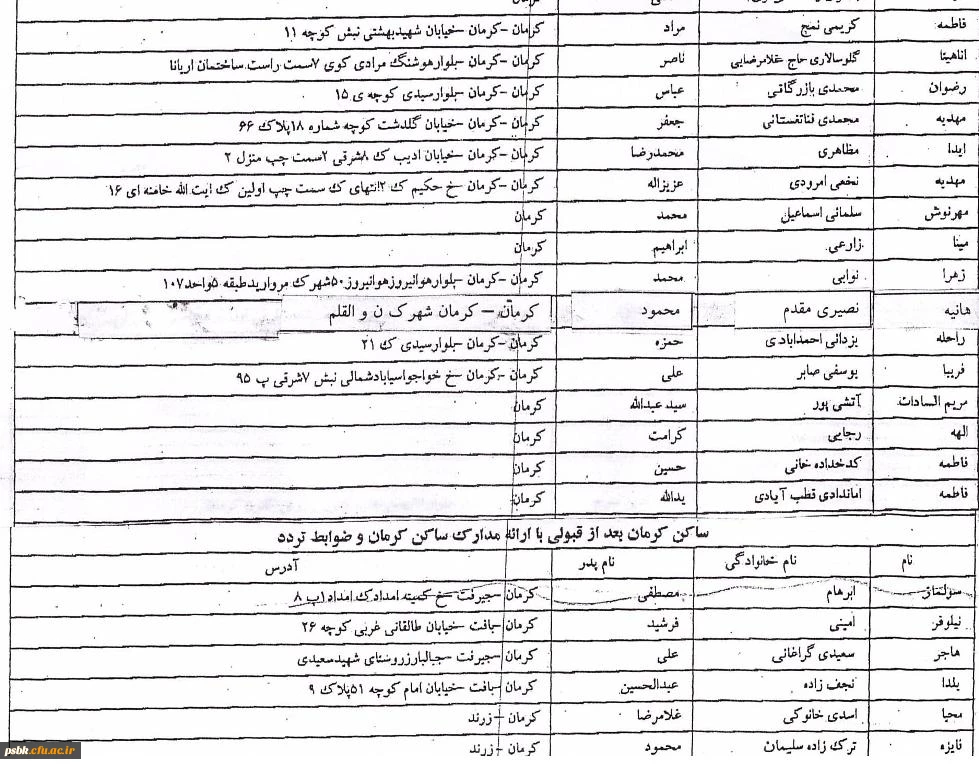 کرمان
فاطمه کریمی نمج مراد کرمان –کرمان –خیابان شهیدبهشتی نبش کوچه ۱۱
اناهیتا گلوسالاری حاج غلامرضایی ناصر کرمان –کرمان –بلوارهوشنگ مرادی کوی ۷سمت راست ساختمان اریانا
رضوان محمدی بازرگاقی عباس کرمان –کرمان –بلوارسیدی کوچه ی ۱۵
مهدیه محمدی قناتغستانی جعفر کرمان –کرمان –خیابان گلدشت کوچه شماره ۱۸پلاک ۶۶
ایدا مظاهری محمدرضا کرمان –کرمان –خیابان ادیب ک ۸شرقی ۲سمت چپ منزل ۲
مهدیه نخعی امرودی عزیزاله کرمان –کرمان –خ حکیم ک ۲انتهای ک سمت چپ اولین ک ایت الله خامنه ای ۱۶
مهرنوش سلمانی اسماعیل محمد کرمان
مینا زارعی ابراهیم کرمان
زهرا نوابی محمد کرمان –کرمان –بلوارهوانیروزهوانیروز۵۰شهرک مرواریدطبقه ۵واحد۱۰۷
هانیه نصیری مقدم محمود کرمان – کرمان شهرک ن و القلم
راحله یزدانی احمدابادی حمزه کرمان –کرمان –بلوارسیدی ک ۲۱
فریبا یوسفی صابر علی کرمان –کرمان –خ خواجواسیابادشمالی نبش ۷شرقی پ ۹۵
مریم السادات آتشی پور سید عبدالله کرمان
الهه رجایی کرامت کرمان
فاطمه کدخداده خانی حسین کرمان
فاطمه اماندادی قطب آبادی یدالله کرمان
ساکن کرمان بعد از قبولی با ارائه مدارک ساکن کرمان و ضوابط تردد
نام نام خانوادگی نام پدر آدرس
سولماق ابرهام مصطفی کرمان –جیرفت –خ کمیته امدادک امداد۱پ ۸
نیلوفر امینی فرشید کرمان –بافت –خیابان طالقانی غربی کوچه ۲۶
هاجر سعیدی گراغانی علی کرمان –جیرفت –جبالبارزروستای شهیدسعیدی
یلدا نجف زاده عبدالحسین کرمان –بافت –خیابان امام کوچه ۵۱پلاک ۹
محیا اسدی خانوکی غلامرضا کرمان – زرند
فایزه ترک زاده سلیمان محمود کرمان – زرند
psbk.cfu.ac.ir